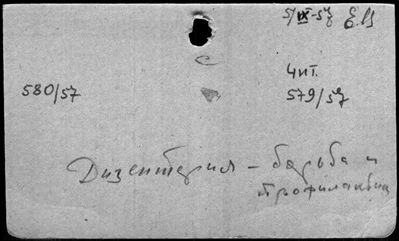 5/IX-57
Чит.
580/57
579/57
Дизентерия – борьба и
профилактика